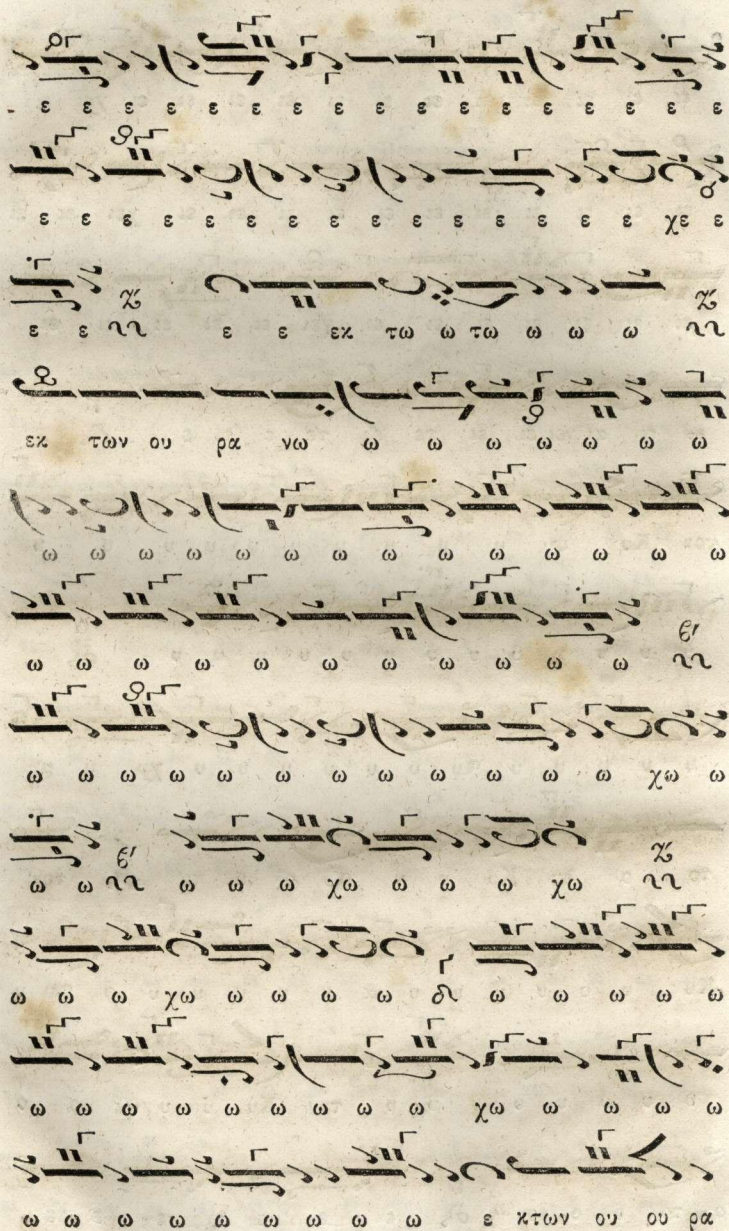 ε ε ε ε ε ε ε ε ε ε ε ε ε ε ε ε ε
ε ε ε ε ε ε ε ε ε ε ε ε ε ε ε χε ε
ε ε ζ' ε ε εκ τω ω τω ω ω ω ζ'
εκ των ου ρα νω ω ω ω ω ω ω ω
ω ω ω ω ω ω ω ω ω ω ω ω ω ω ω
ω ω ω ω ω ω ω ω ω ω ω ω ϐ'
ω ω ω ω ω ω ω ω ω ω ω ω χω ω
ω ω ϐ' ω ω ω χω ω ω ω χω ζ'
ω ω ω χω ω ω ω ω ω ω ω ω ω
ω ω ω ω ω ω ω ω ω χω ω ω ω ω
ω ω ω ω ω ω ω ω ω ε κτων ου ου ρα